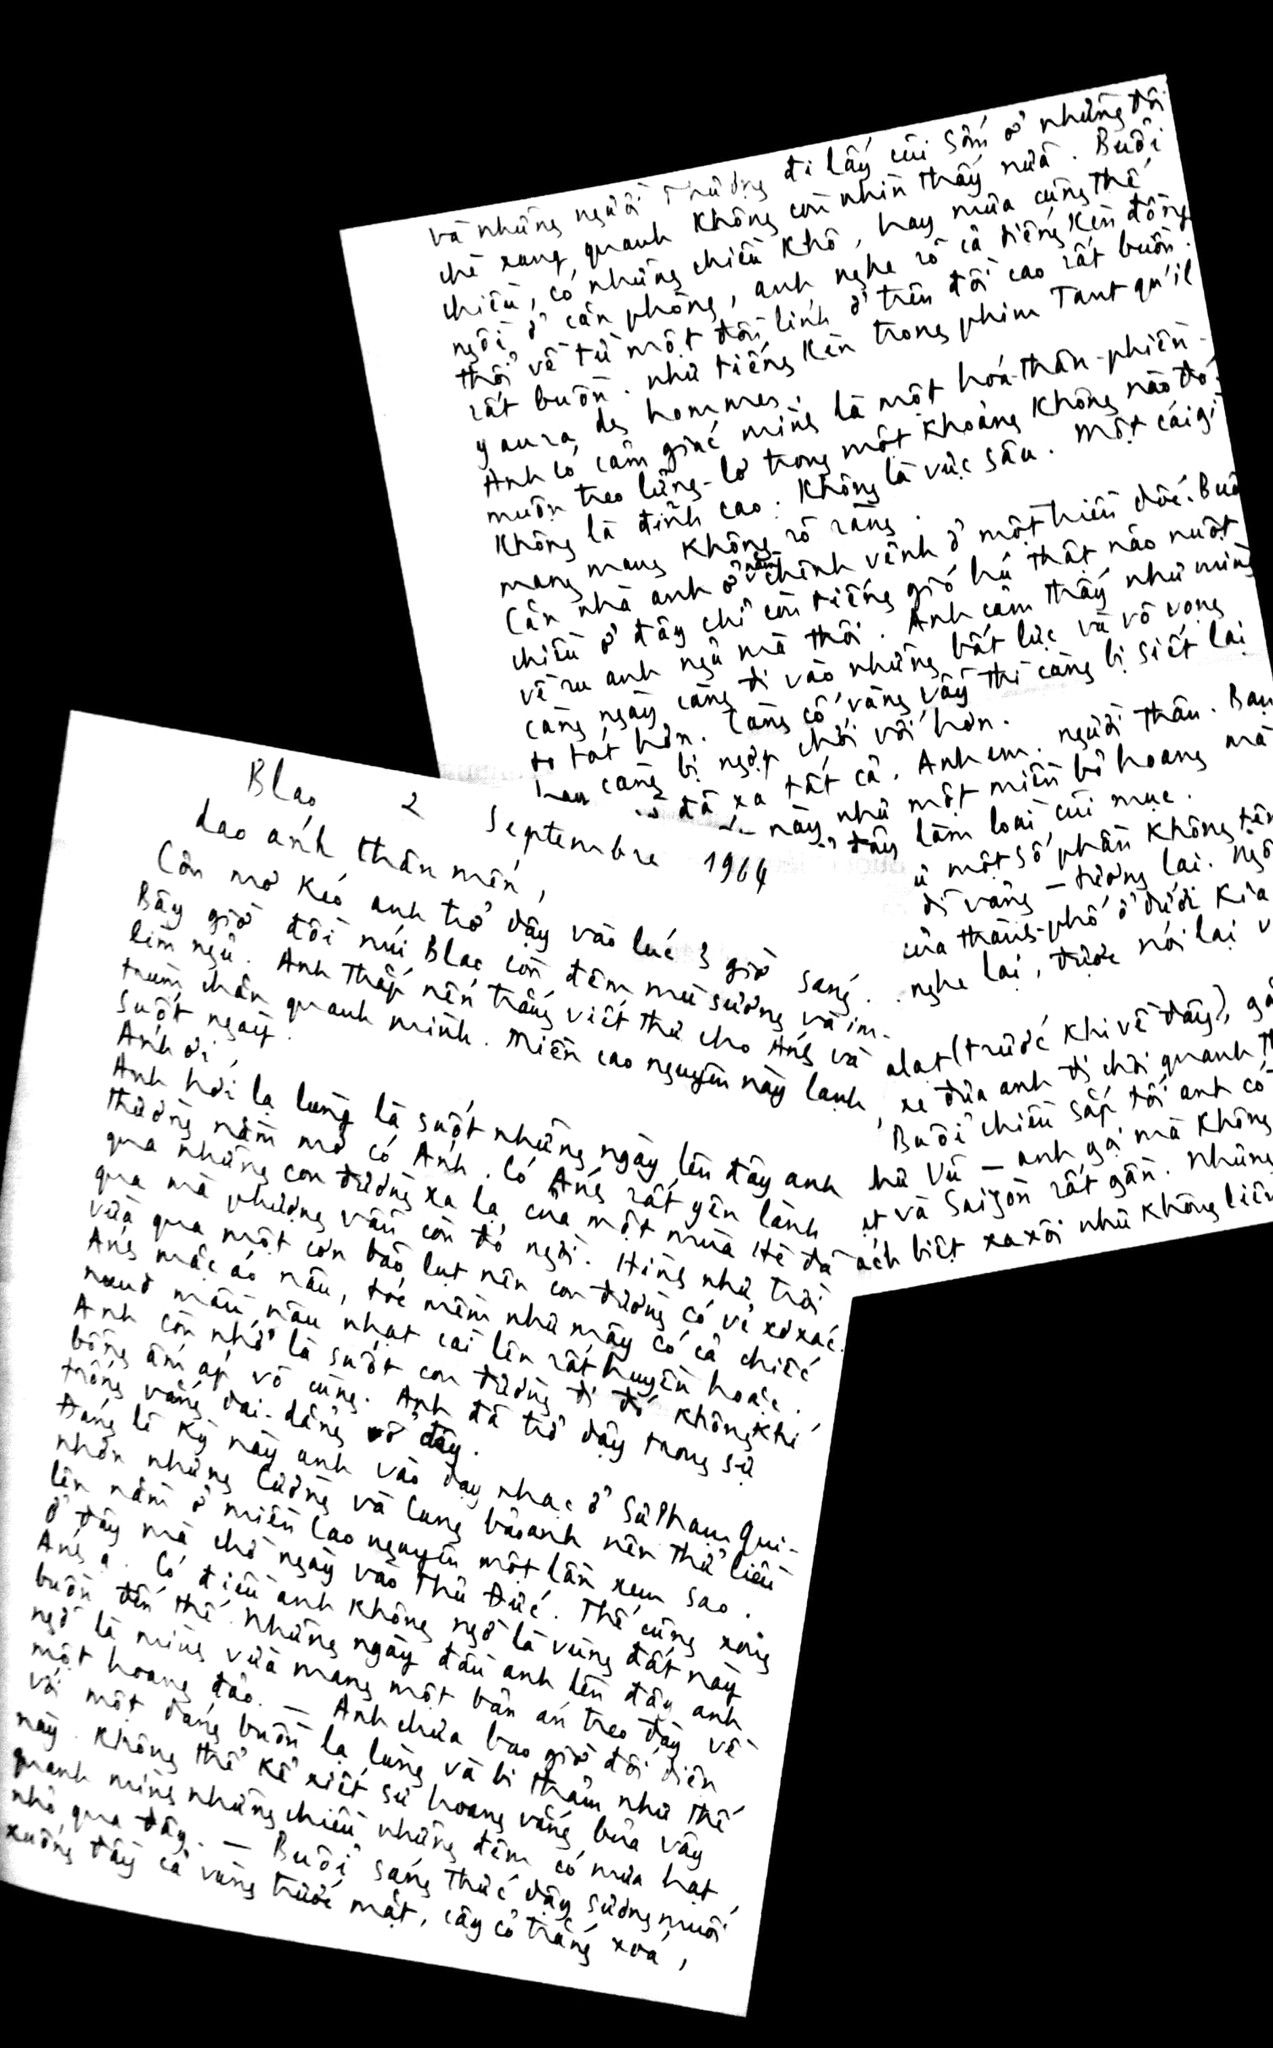 Blao 2 Septembre 1964
dao ánh thân mến,
Cơn mơ kéo anh trở dậy vào lúc 3 giờ sáng.
Bây giờ đồi núi Blao còn đêm mù sương và im-
lìm ngủ. Anh thắp nến trắng viết thư cho Ánh và
trùm chăn quanh mình. Miền cao nguyên này lạnh
suốt ngày.
Ánh ơi,
Anh hơi lạ lùng là suốt những ngày lên đây anh
thường nằm mơ có Ánh. Có Ánh rất yên lành
qua những con đường xa lạ của một mùa Hè đã
qua mà phượng vẫn còn đỏ ngời. Hình như trời
vừa qua một cơn bão lụt nên con đường có vẻ xơ xác.
Ánh mặc áo nâu, tóc mềm như mây có cả chiếc
nơud màu nâu nhạt cài lên rất huyền hoặc.
Anh còn nhớ là suốt con đường đi đó không khí
bỗng ấm áp vô cùng. Anh đã trở dậy trong sự
trống vắng dai-dẳng ở đây.
Đáng lẽ kỳ này anh vào dạy nhạc ở Sư Phạm Qui-
nhơn nhưng Cường và Cung bảo anh nên thử liều
lên nằm ở miền Cao nguyên một lần xem sao.
Ở đây mà chờ ngày vào Thủ Đức. Thế cũng xong
Ánh ạ. Có điều anh không ngờ là vùng đất này
buồn đến thế. Những ngày đầu anh lên đây anh
ngỡ là mình vừa mang một bản án treo đày về
một hoang đảo. — Anh chưa bao giờ đối diện
với một dáng buồn lạ lùng và bi thảm như thế
này. Không thể kể xiết sự hoang vắng bủa vây
quanh mình những chiều những đêm có mưa hạt
nhỏ qua đây. — Buổi sáng thức dậy sương muối
xuống đầy cả vùng trước mặt, cây cỏ trắng xoá,
và những người Thượng đi lấy củi sớm ở những đồi
chè xung quanh không còn nhìn thấy nữa. Buổi
chiều, có những chiều khô, hay mưa cũng thế
ngồi ở căn phòng, anh nghe rõ cả tiếng kèn đồng
thổi về từ một đồn lính ở trên đồi cao rất buồn.
rất buồn. như tiếng kèn trong phim Tant qu'il
y aura des hommes.
Anh có cảm giác mình là một hoá-thân-phiền-
muộn treo lửng-lơ trong một khoảng không nào đó.
Không là đỉnh cao. Không là vực sâu. Một cái gì
mang mang không rõ ràng.
Căn nhà anh ở nằm chênh vênh ở một triền dốc. Buổi
chiều ở đây chỉ còn tiếng gió hú thật não nuột
về ru anh ngủ mà thôi. Anh cảm thấy như mình
càng ngày càng đi vào những bất lực và vô vọng
to tát hơn. Càng cố vùng vẫy thì càng bị siết lại
hay càng bị ngợp chới với hơn.
đã xa tất cả. Anh em. người thân. Bạn
này như một miền bỏ hoang mà
đây làm loài củi mục.
một số phần không tên
dĩ vãng — tương lai.
của thành-phố ở dưới kia
nghe lại, được nói lại
alat (trước khi về đây),
xe đưa anh đi chơi quanh
Buổi chiều sắp tối anh có
như Vũ — anh gọi mà không
và Saigon rất gần. nhưng
ách biệt xa xôi như không liên